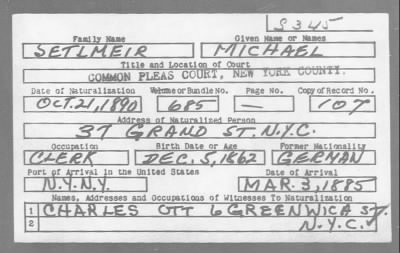 S345
Family Name Given Name or Names
SETLMEIR MICHAEL
Title and Location of Court
COMMON PLEAS COURT, NEW YORK COUNTY.
Date of Naturalization Volume or Bundle No. Page No. Copy of Record No.
OCT. 21, 1890 685 — 107
Address of Naturalized Person
37 GRAND ST. N.Y.C.
Occupation Birth Date or Age Former Nationality
CLERK DEC. 5, 1862 GERMAN
Port of Arrival in the United States Date of Arrival
N.Y.N.Y. MAR. 3, 1885
Names, Addresses and Occupations of Witnesses To Naturalization
1 CHARLES OTT 6 GREENWICH ST.
2 N.Y.C.